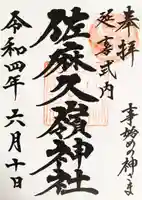 奉拝
事始めの神さま
延喜式内
佐麻久嶺神社
令和四年六月十日